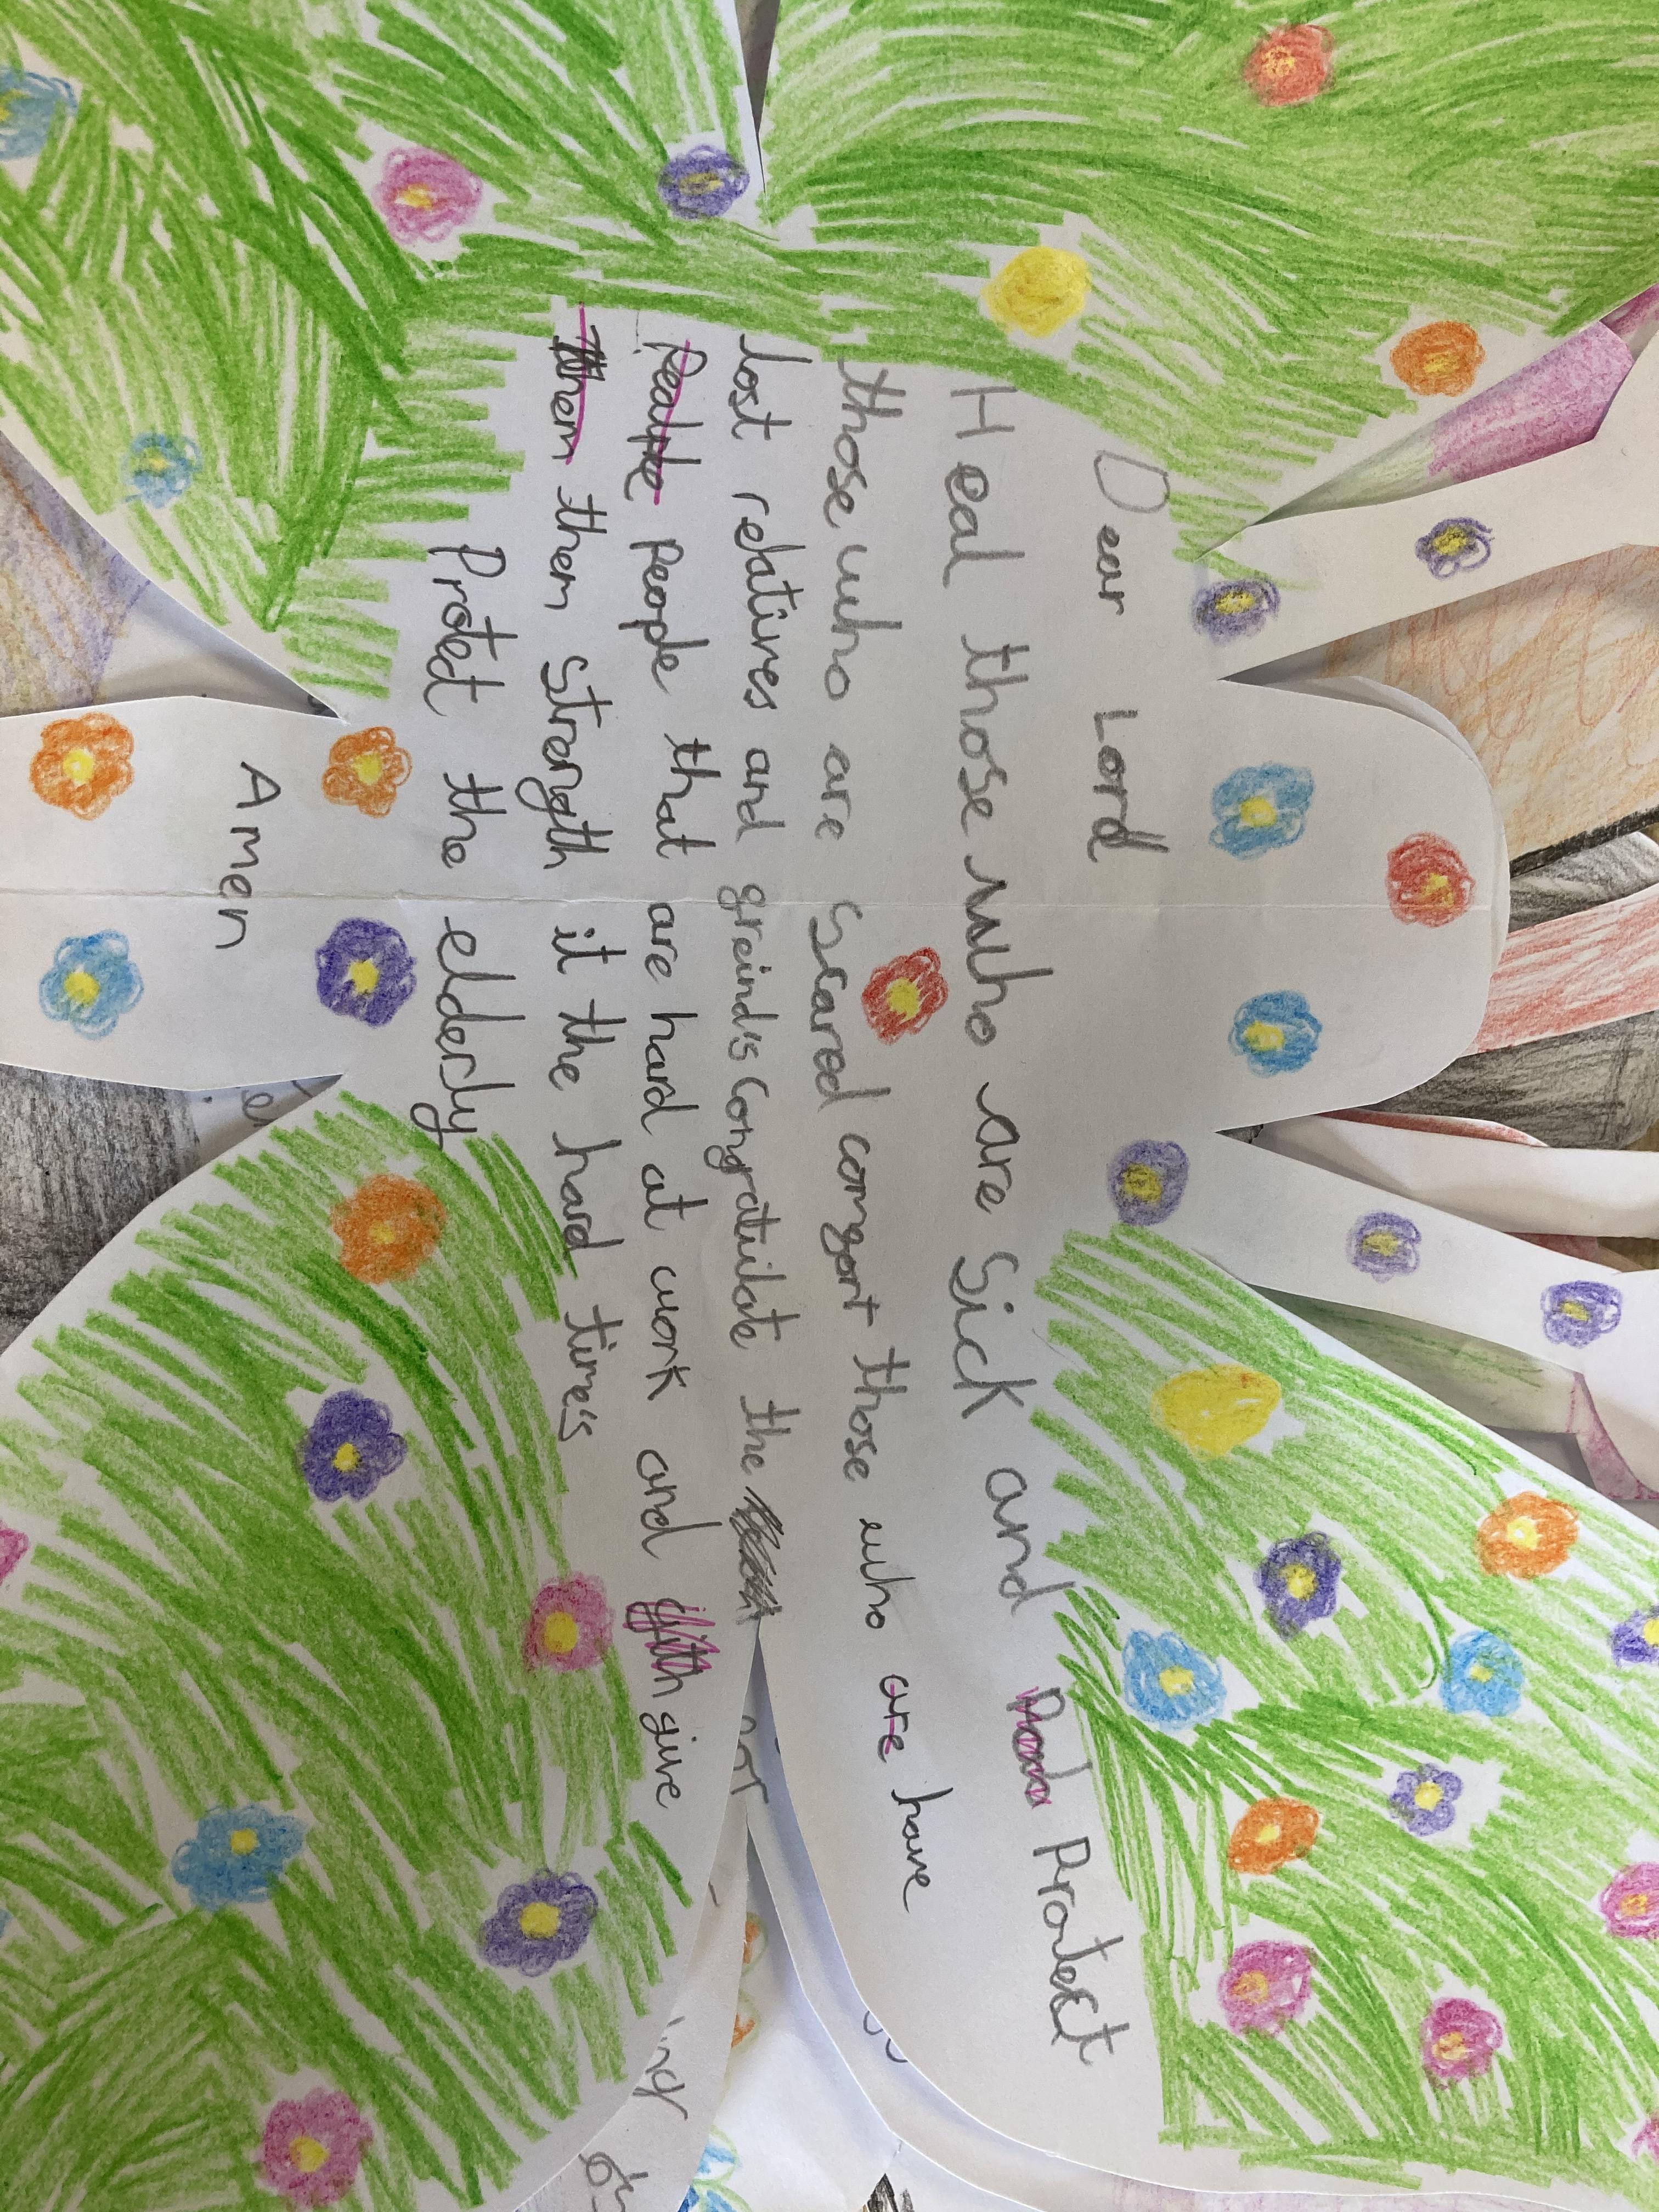 Dear Lord
Heal those who are Sick and Protect
those who are Scared comgort those who are have
lost relatives and greind's Congratulate the
Pealpe people that are hard at work and give
them them strength it the hard times
Protect the elderly
Amen